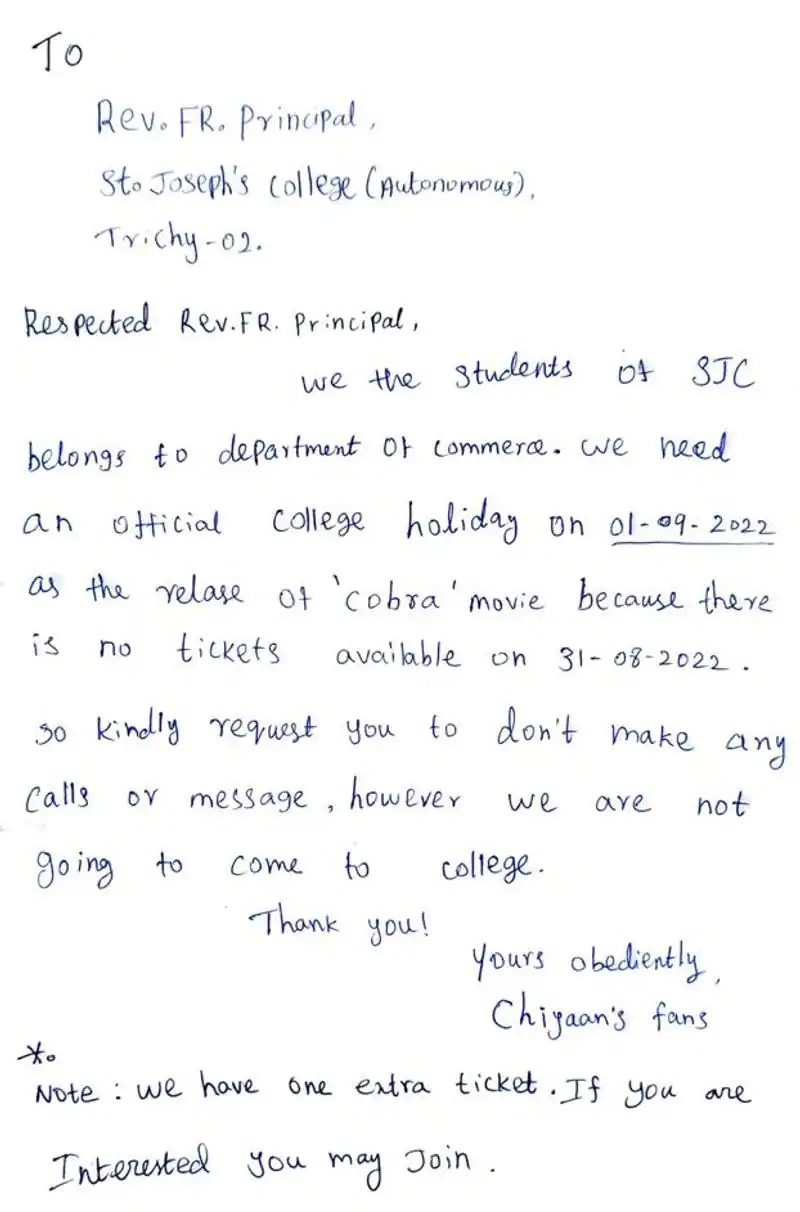 To
Rev. FR. Principal,
St. Joseph's College (Autonomous),
Trichy-02.
Respected Rev.FR. Principal,
we the students of SJC
belongs to department of commerce. we need
an official college holiday on 01-09-2022
as the relase of 'cobra' movie because there
is no tickets available on 31-08-2022.
so kindly request you to don't make any
calls or message, however we are not
going to come to college.
Thank you!
Yours obediently,
Chiyaan's fans
*.
Note: we have one extra ticket. If you are
Interested you may Join.